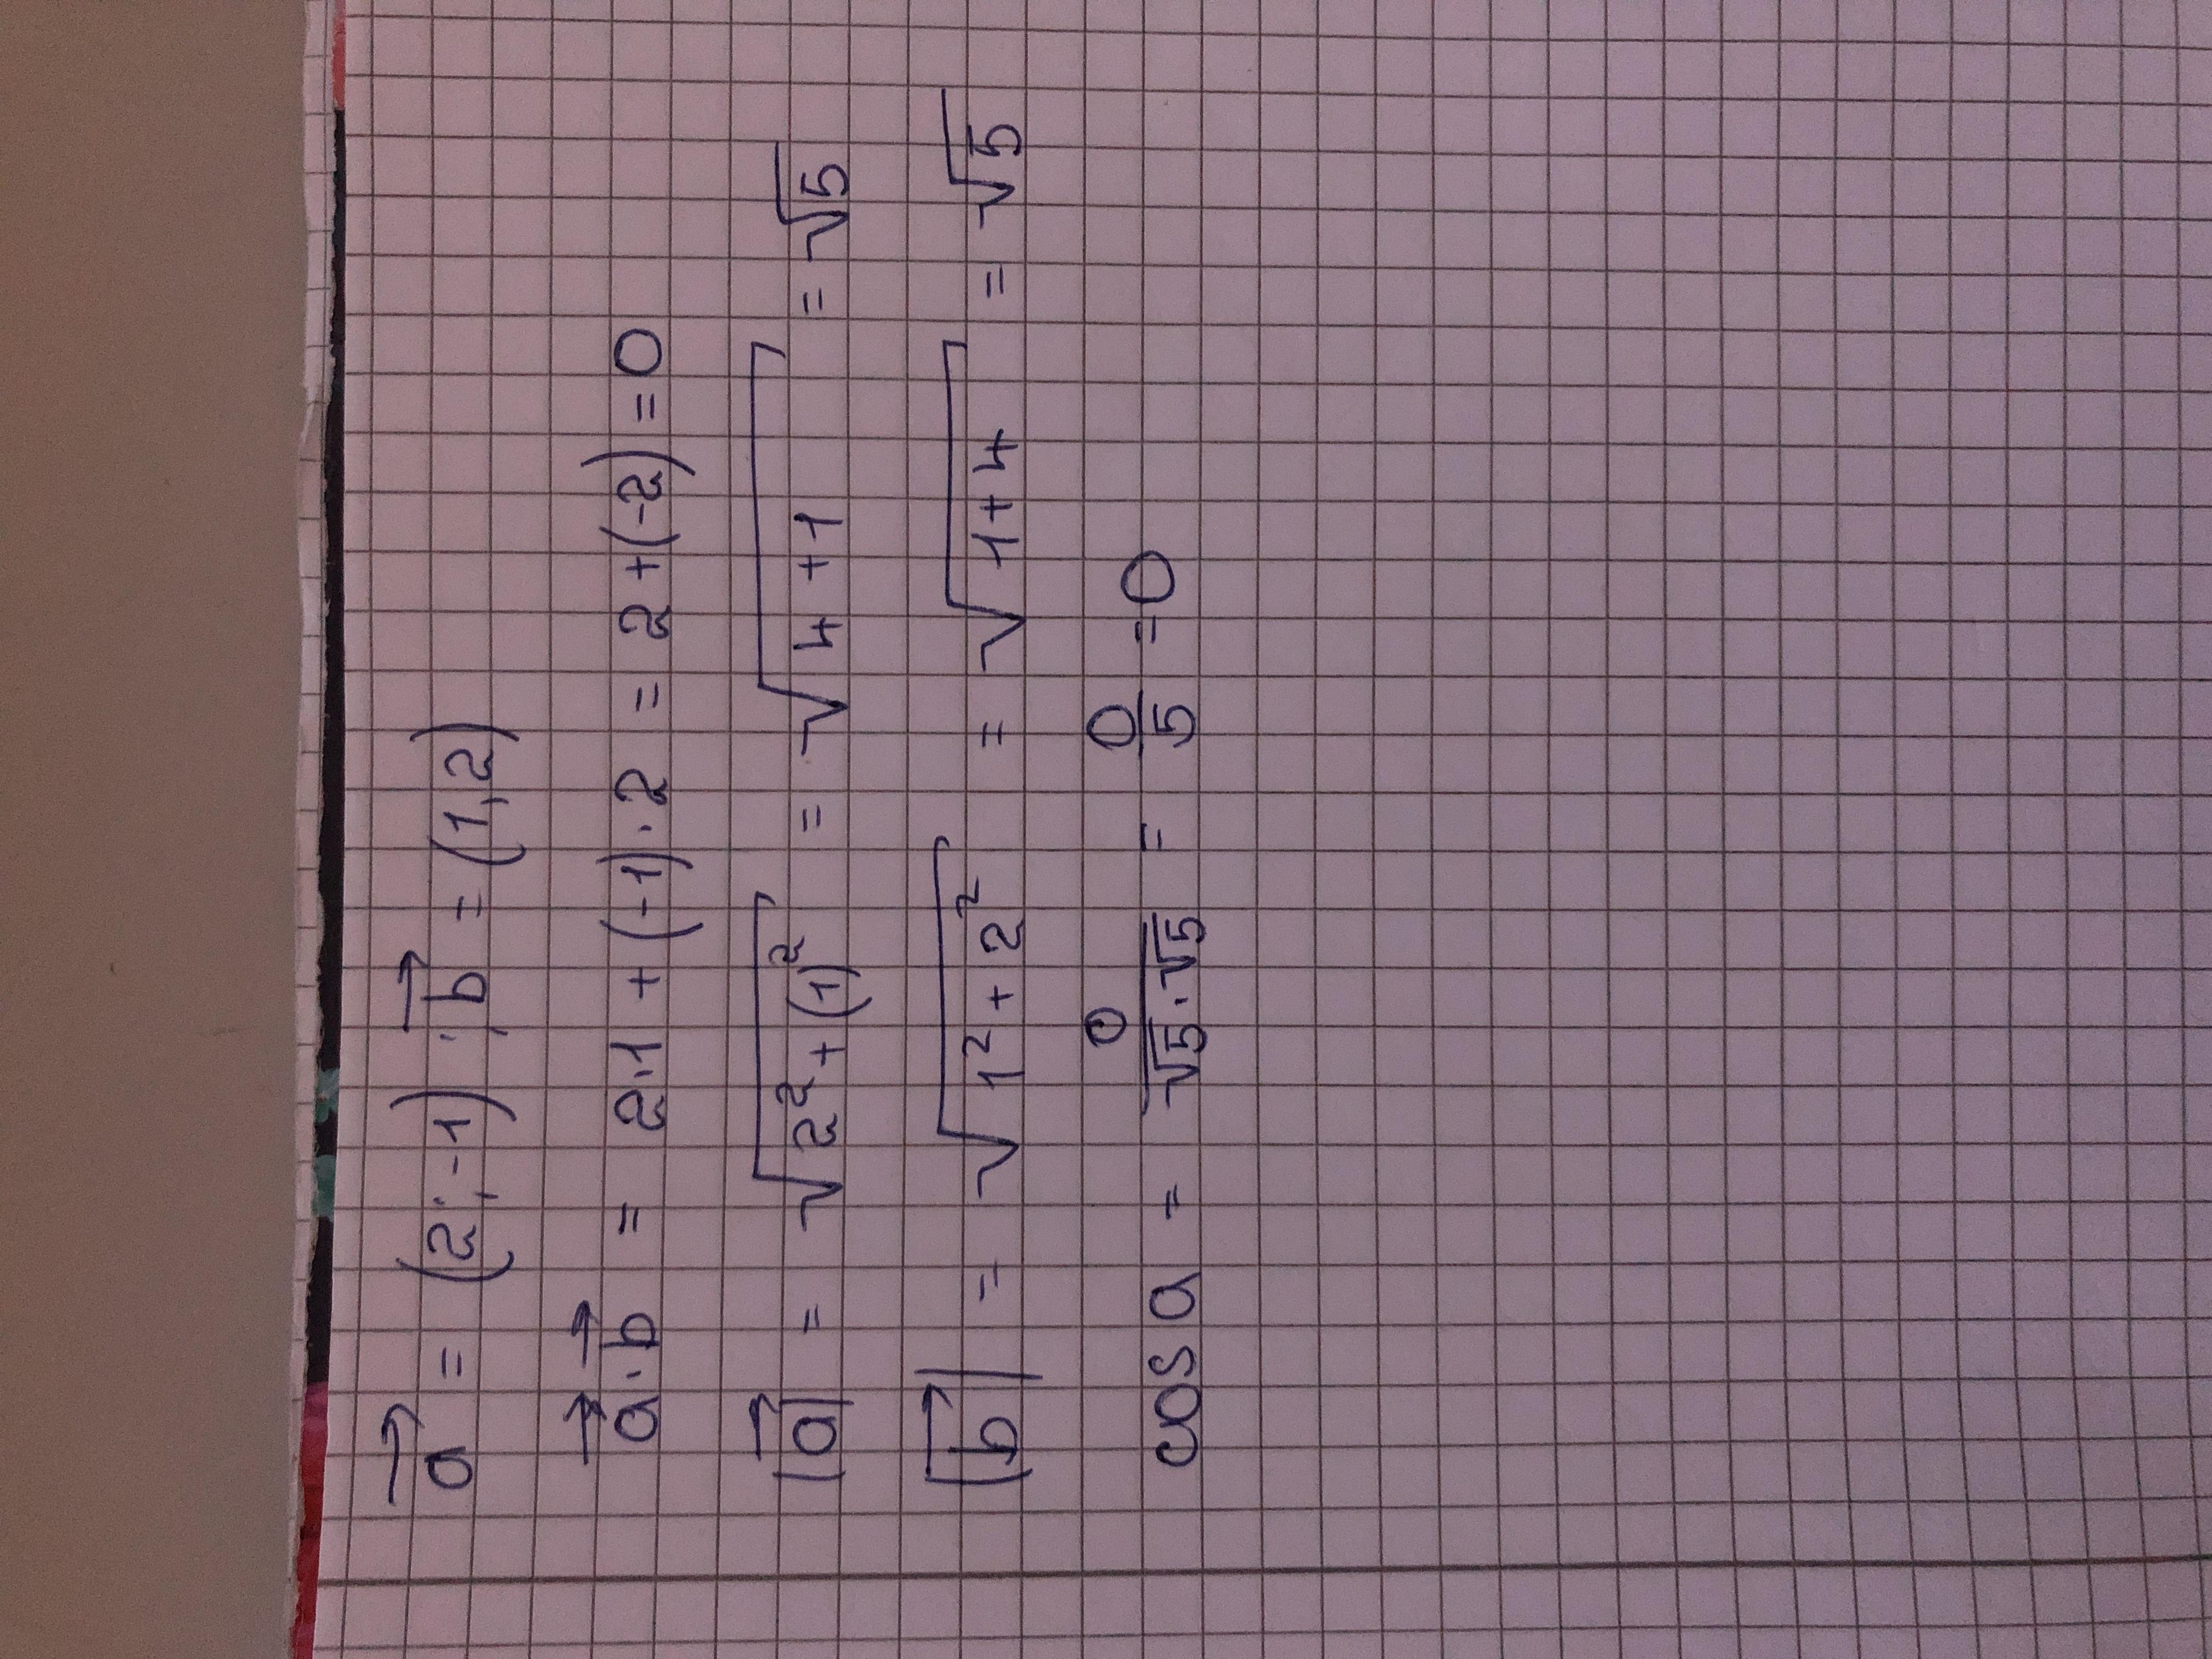 a⃗ = (2;-1) ; b⃗ = (1,2)
a⃗·b⃗ = 2·1 + (-1)·2 = 2+(-2)=0
|a⃗| = √(2²+(1)²) = √(4+1) = √5
|b⃗| = √(1²+2²) = √(1+4) = √5
cos a = 0/(√5·√5) = 0/5 =0